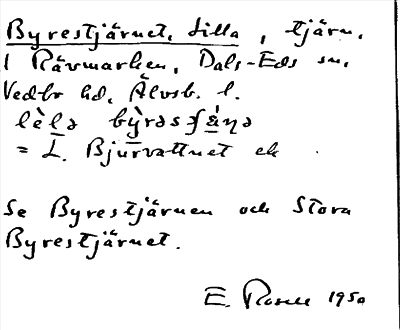 Byrestjärnet, Lilla, tjärn,
i Rävmarken, Dals-Eds sn,
Vedbo hd, Älvsb. l.
= L. Bjurvattnet ek
Se Byrestjärnen och Stora
Byrestjärnet.
E. Rosell 1950